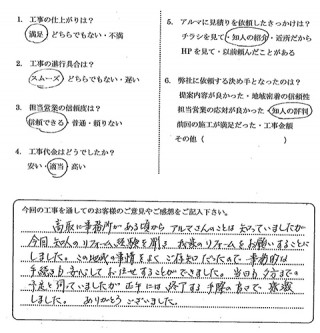 1. 工事の仕上がりは？
満足・どちらでもない・不満
2. 工事の進行具合は？
スムーズ・どちらでもない・遅い
3. 担当営業の信頼度は？
信頼できる・普通・頼りない
4. 工事代金はどうでしたか？
安い・適当・高い
5. アルマに見積りを依頼したきっかけは？
チラシを見て・知人の紹介・近所だから
HPを見て・以前頼んだことがある
6. 弊社に依頼する決め手となったのは？
提案内容が良かった・地域密着の信頼性
担当営業の応対が良かった・知人の評判
前回の施工が満足だった・工事金額
その他（　　）
今回の工事を通してのお客様のご意見やご感想をご記入下さい。
高取に事務所がある頃からアルマさんのことは知っていましたが
今回知人のリフォーム経験を聞き我家のリフォームをお願いすることに
しました。この地域の事情をよくご存知だったので事務的な
手続きも安心してお任せすることができました。当日も夕方までの
予定と伺っていましたが正午には終了する手際の良さで感激
しました。ありがとうございました。